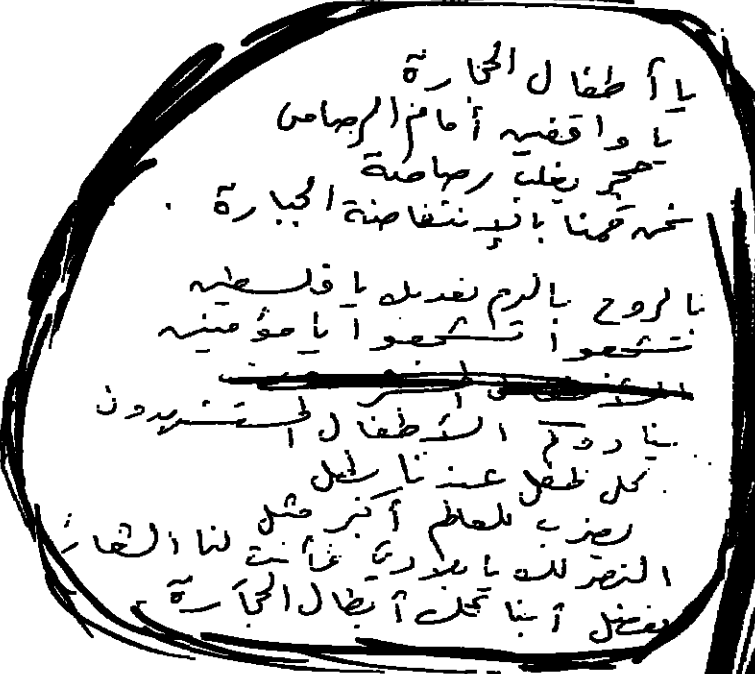 يا أطفال الحجارة
يا واقفين أمام الرصاص
حجر يغلب رصاصة
نحن قمنا بالإنتفاضة الجبارة
بالروح بالدم نفديك يا فلسطين
تشجعوا تشجعوا يا مؤمنين
يناديكم الأطفال المستشهدون
كل طفل عندنا بطل
يضرب للعالم أكبر مثل
النصر لك يا بلادي فأنت لنا الشعار
بفضل أبنائك أبطال الحجارة